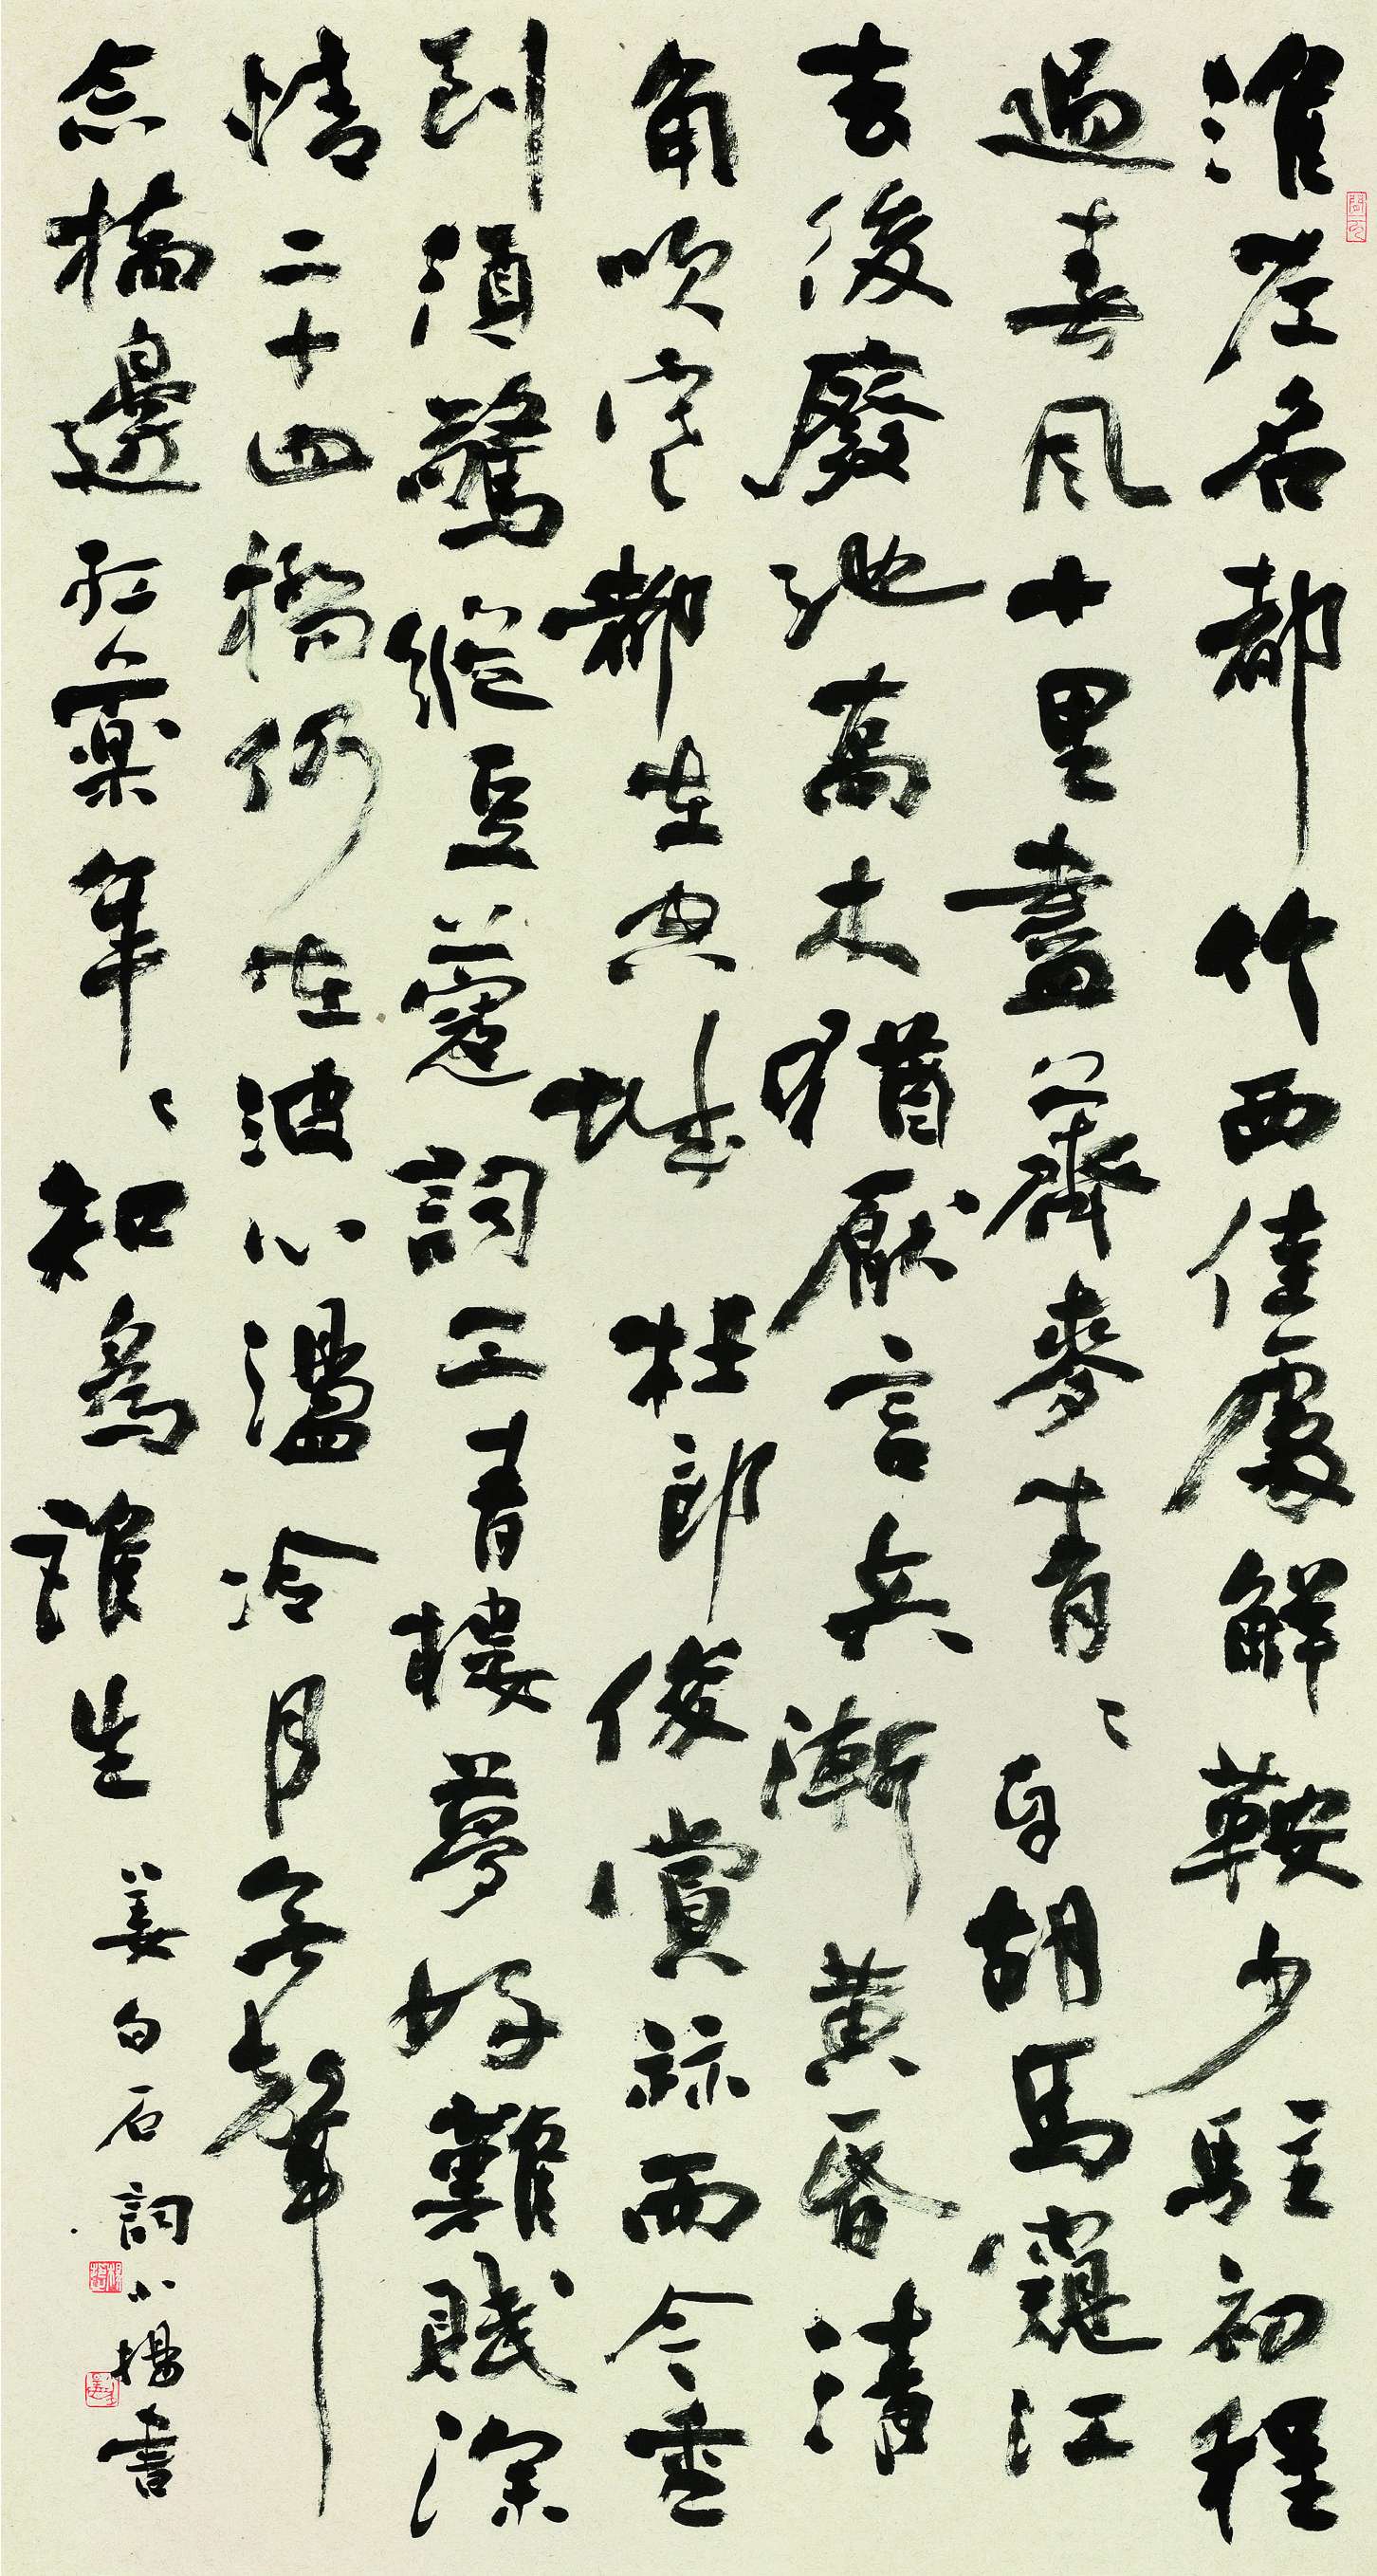 淮左名都竹西佳處解鞍少駐初程
過春風十里盡薺麥青〻自胡馬窺江
去後廢池喬木猶厭言兵漸黃昏清
角吹寒都在空城杜郎俊賞祘而今重
到須驚縱豆蔻詞工青樓夢好難賦深
情二十四橋仍在波心盪冷月無聲
念橋邊紅藥年〻知爲誰生
姜白石詞小楊書